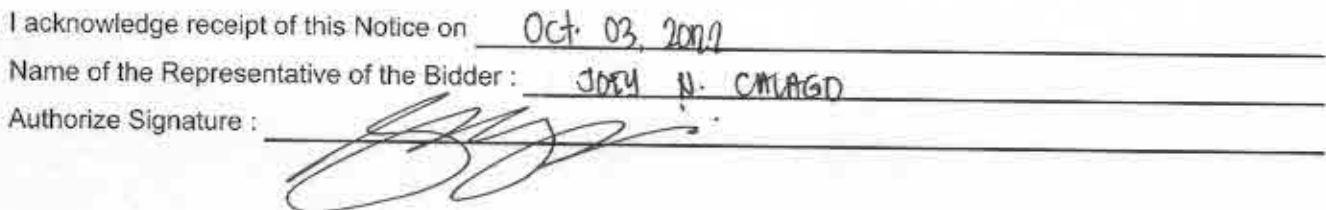 I acknowledge receipt of this Notice on Oct. 03, 2022
Name of the Representative of the Bidder : JOEY N. CALAGO
Authorize Signature :